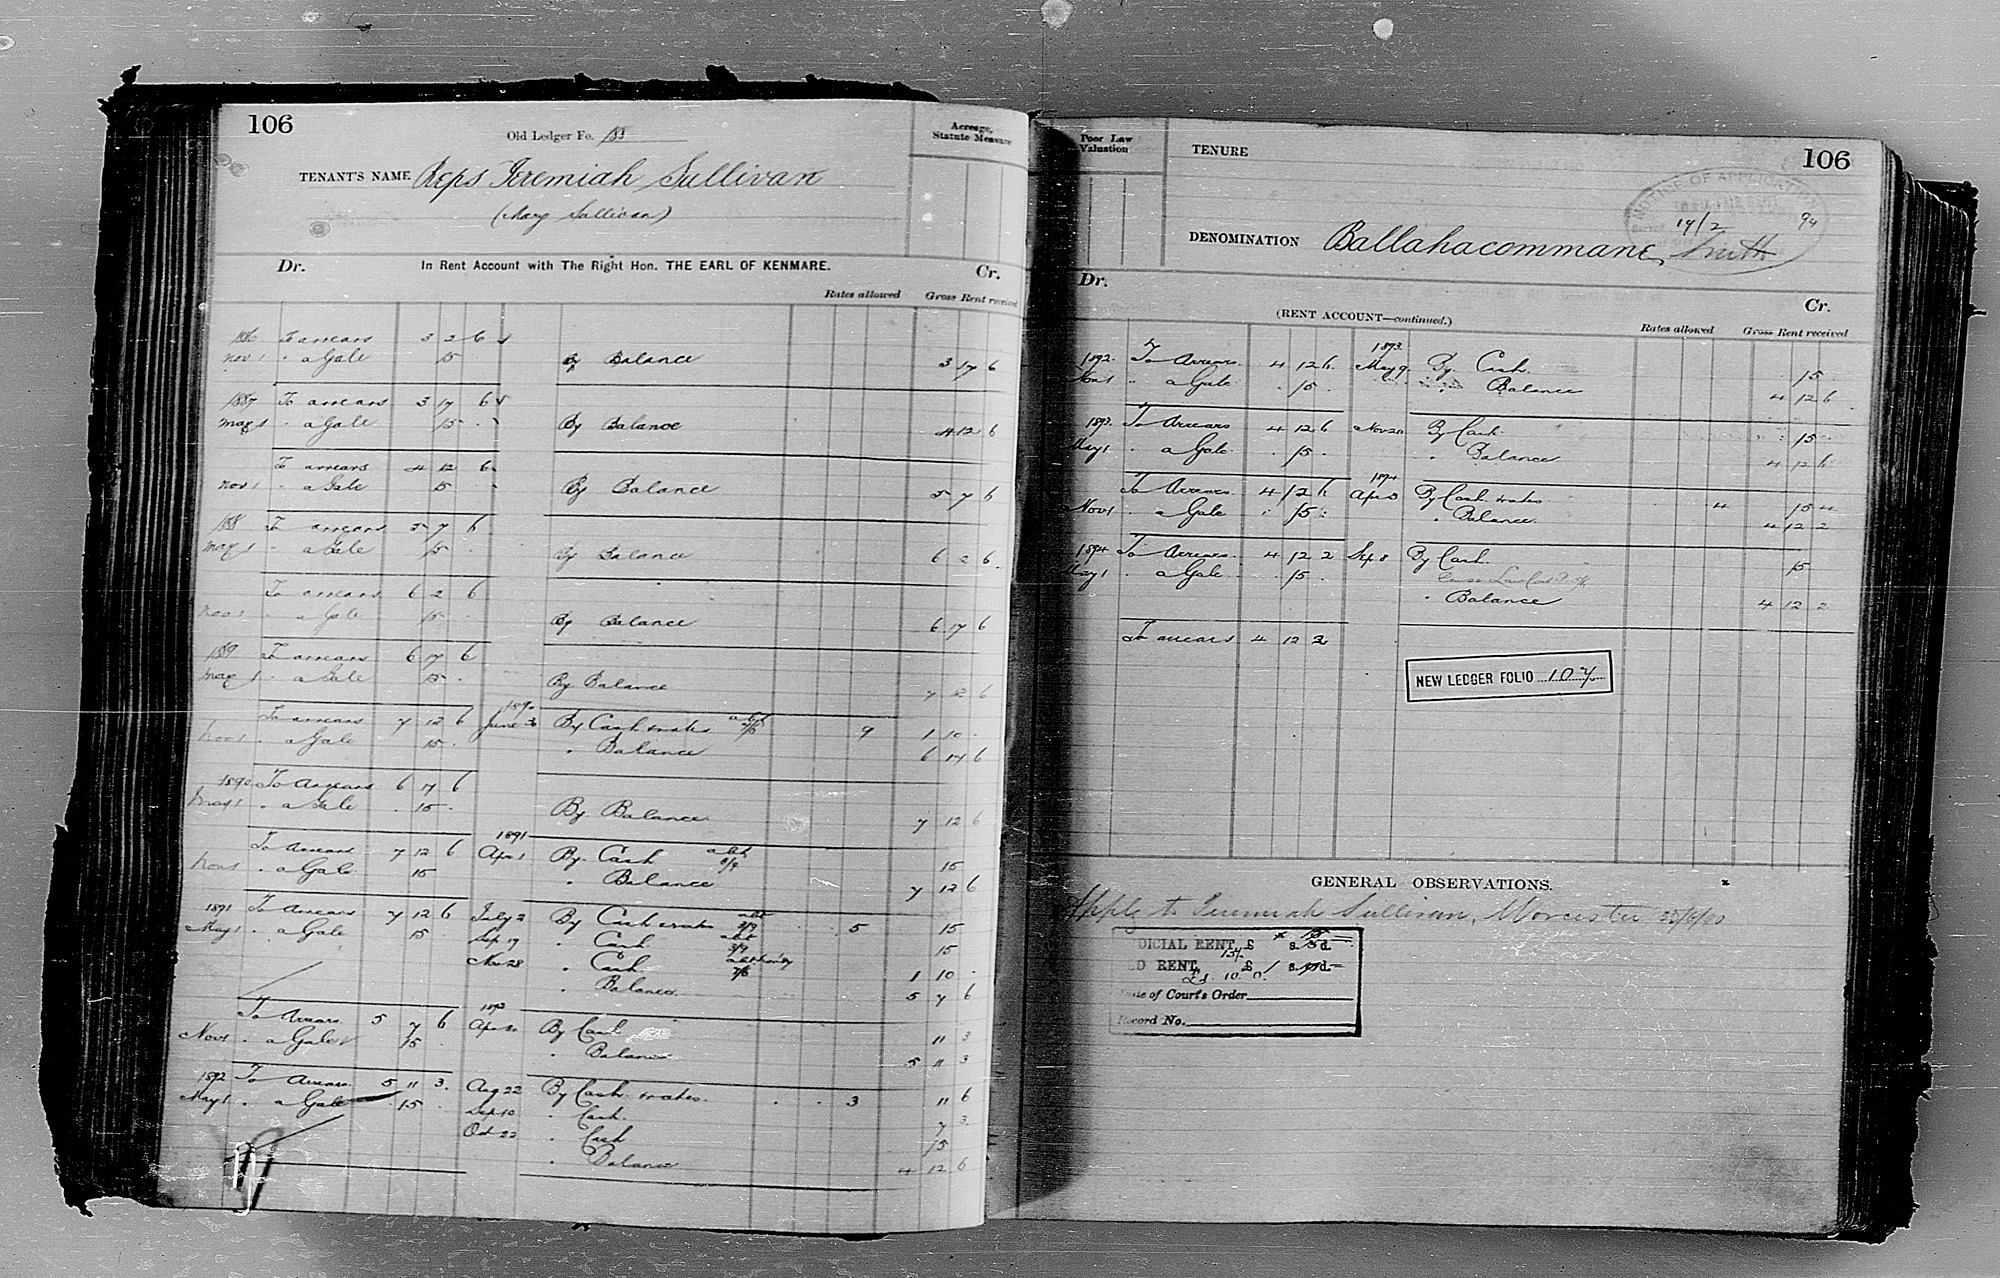 106
Old Ledger Fo. 188
Acreage, Statute Measure
TENANT'S NAME Reps Jeremiah Sullivan
(Mary Sullivan)
Dr. In Rent Account with The Right Hon. THE EARL OF KENMARE. Cr.
Rates allowed Gross Rent received
1886 To arrears 3 2 6
Nov 1 " a Gale 15 By Balance 3 17 6
1887 To arrears 3 17 6
May 1 " a Gale 15 By Balance 4 12 6
To arrears 4 12 6
Nov 1 " a Gale 15 By Balance 5 7 6
1888 To arrears 5 7 6
May 1 " a Gale 15 By Balance 6 2 6
To arrears 6 2 6
Nov 1 " a Gale 15 By Balance 6 17 6
1889 To arrears 6 17 6
May 1 " a Gale 15 By Balance 7 12 6
1890
To arrears 7 12 6 June 30 By Cash & rates 9 1 10
Nov 1 " a Gale 15 " Balance 6 17 6
1890 To Arrears 6 17 6
May 1 " a Gale 15 By Balance 7 12 6
1891
To Arrears 7 12 6 Apr 1 By Cash 15
Nov 1 " a Gale 15 " Balance 7 12 6
1891 To Arrears 7 12 6 July 2 By Cash & rates 5 15
May 1 " a Gale 15 Sep 19 " Cash 15
Nov 28 " Cash 1 10
" Balance 5 7 6
To Arrears 5 7 6 Apr By Cash 11 3
Nov 1 " a Gale 15 " Balance 5 11 3
1892 To Arrears 5 11 3 Aug 22 By Cash & rates 3 11 6
May 1 " a Gale 15 Sep 10 " Cash 7 3
Oct 22 " Cash 15
" Balance 4 12 6
Poor Law Valuation
TENURE
106
NOTICE OF APPLICATION
14/2 94
DENOMINATION Ballahacommane, Smith
Dr. Cr.
(RENT ACCOUNT—continued.)
Rates allowed Gross Rent received
1893
1892 To Arrears 4 12 6 May 9 By Cash 15
Nov 1 " a Gale 15 " Balance 4 12 6
1893 To Arrears 4 12 6 Nov 20 By Cash 15
May 1 " a Gale 15 " Balance 4 12 6
1894
To Arrears 4 12 6 Apr 3 By Cash & rates 4 15 4
Nov 1 " a Gale 15 " Balance 4 12 2
1894 To Arrears 4 12 2 Sep 8 By Cash 15
May 1 " a Gale 15
" Balance 4 12 2
To arrears 4 12 2
NEW LEDGER FOLIO 107
GENERAL OBSERVATIONS.
Apply to Jeremiah Sullivan, Worcester
DICIAL RENT, £ s. d.
D RENT, £ s. d.
£1. 10. 0
of Court's Order
Record No.